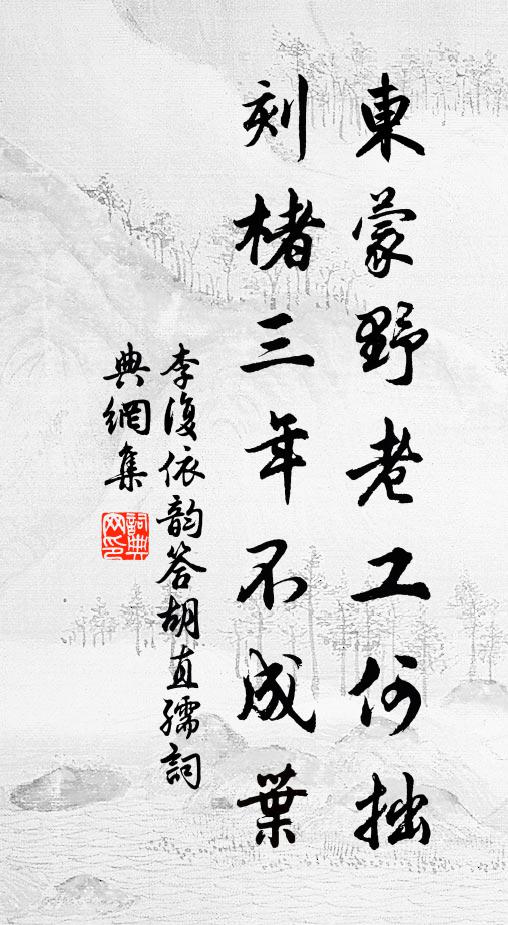 東蒙野老工何拙
刻楮三年不成葉
李復依韵答胡直孺詞
典網集
詞典
网印